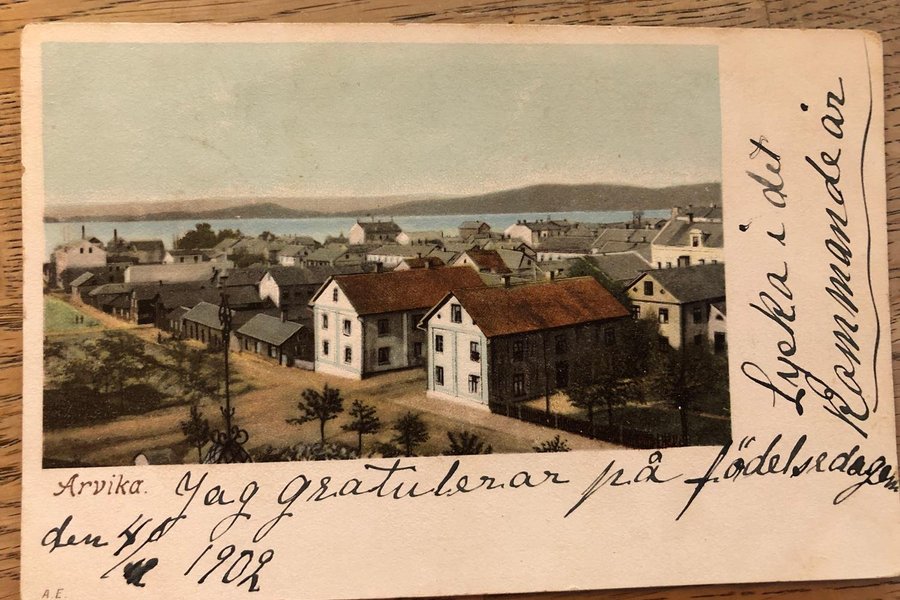 Arvika.
Jag gratulerar på födelsedagen
den 4/
1902
Lycka i det
Kommande år
A.E.